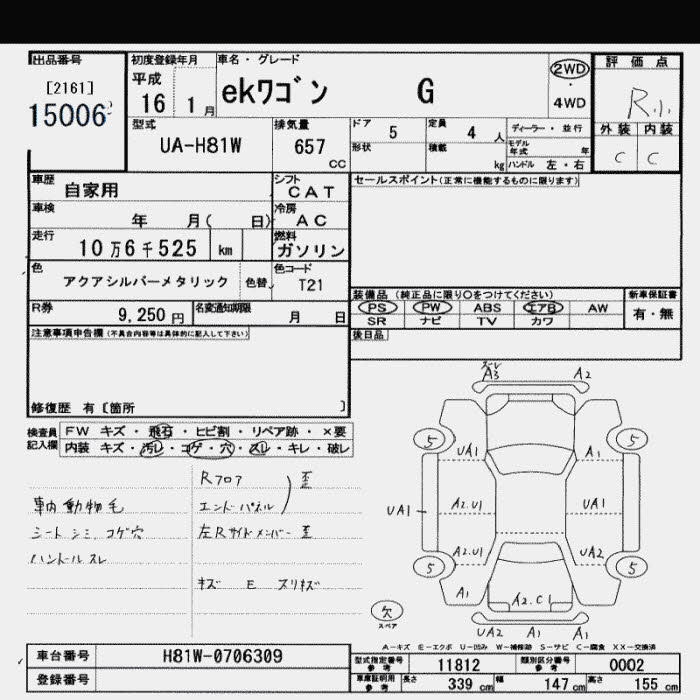 出品番号 初度登録年月 車名・グレード 評価点
[2161] 平成 ekワゴン G 2WD
15006 16 1月 4WD R
型式 排気量 ドア 5 定員 4人 ディーラー・並行 外装 内装
UA-H81W 657cc 形状 積載 kg モデル年式 年 C C
ハンドル 左・右
車歴 自家用 シフト CAT セールスポイント(正常に機能するものに限ります)
車検 年 月( 日) 冷房 AC
走行 10万6千525 km 燃料 ガソリン
色 アクアシルバーメタリック 色替 色コード T21
装備品 (純正品に限り○をつけてください) 新車保証書
R券 9,250円 名変通知期限 月 日 PS PW ABS エアB AW 有・無
SR ナビ TV カワ
注意事項申告欄(不具合内容等は具体的に記入して下さい) 後日品
修復歴 有 [箇所 ]
検査員記入欄 FW キズ・飛石・ヒビ割・リペア跡・×要
内装 キズ・汚レ・コゲ・穴・スレ・キレ・破レ
Rフロア 歪
車内動物毛 エンドパネル
シートシミ コゲ穴 左Rサイドメンバー 歪
ハンドルスレ
キズ E スリキズ
スレ
A3 A2
5 5
UA1 A1
UA1 A2.U1 UA1
A2.U1 UA2
5 5
A1 A2.C1
欠
スペア
UA2 A1 A1
A-キズ E-エクボ U-凹み W-補修跡 S-サビ C-腐食 XX-交換済
車台番号 H81W-0706309 型式指定番号 参考 11812 類別区分番号 参考 0002
登録番号 車庫証明用 参考 長さ 339cm 幅 147cm 高さ 155cm